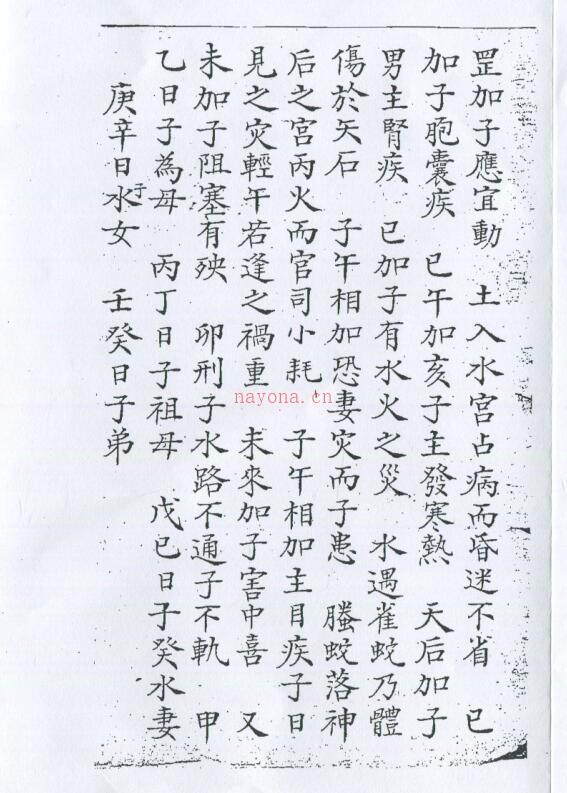 罡加子應宜動　土入水宮占病而昏迷不省　巳
加子胞囊疾　巳午加亥子主發寒熱　天后加子
男主腎疾　巳加子有水火之災　水遇雀蛇乃體
傷於矢石　子午相加恐妻灾而子患　螣蛇落神
后之宮丙火而官司小耗　子午相加主目疾子日
見之灾輕午若逢之禍重　未來加子害中喜　又
未加子阻塞有殃　卯刑子水路不通子不軌　甲
乙日子為母　丙丁日子祖母　戊己日子癸水妻
庚辛日水子女　壬癸日子弟
nayona.cn